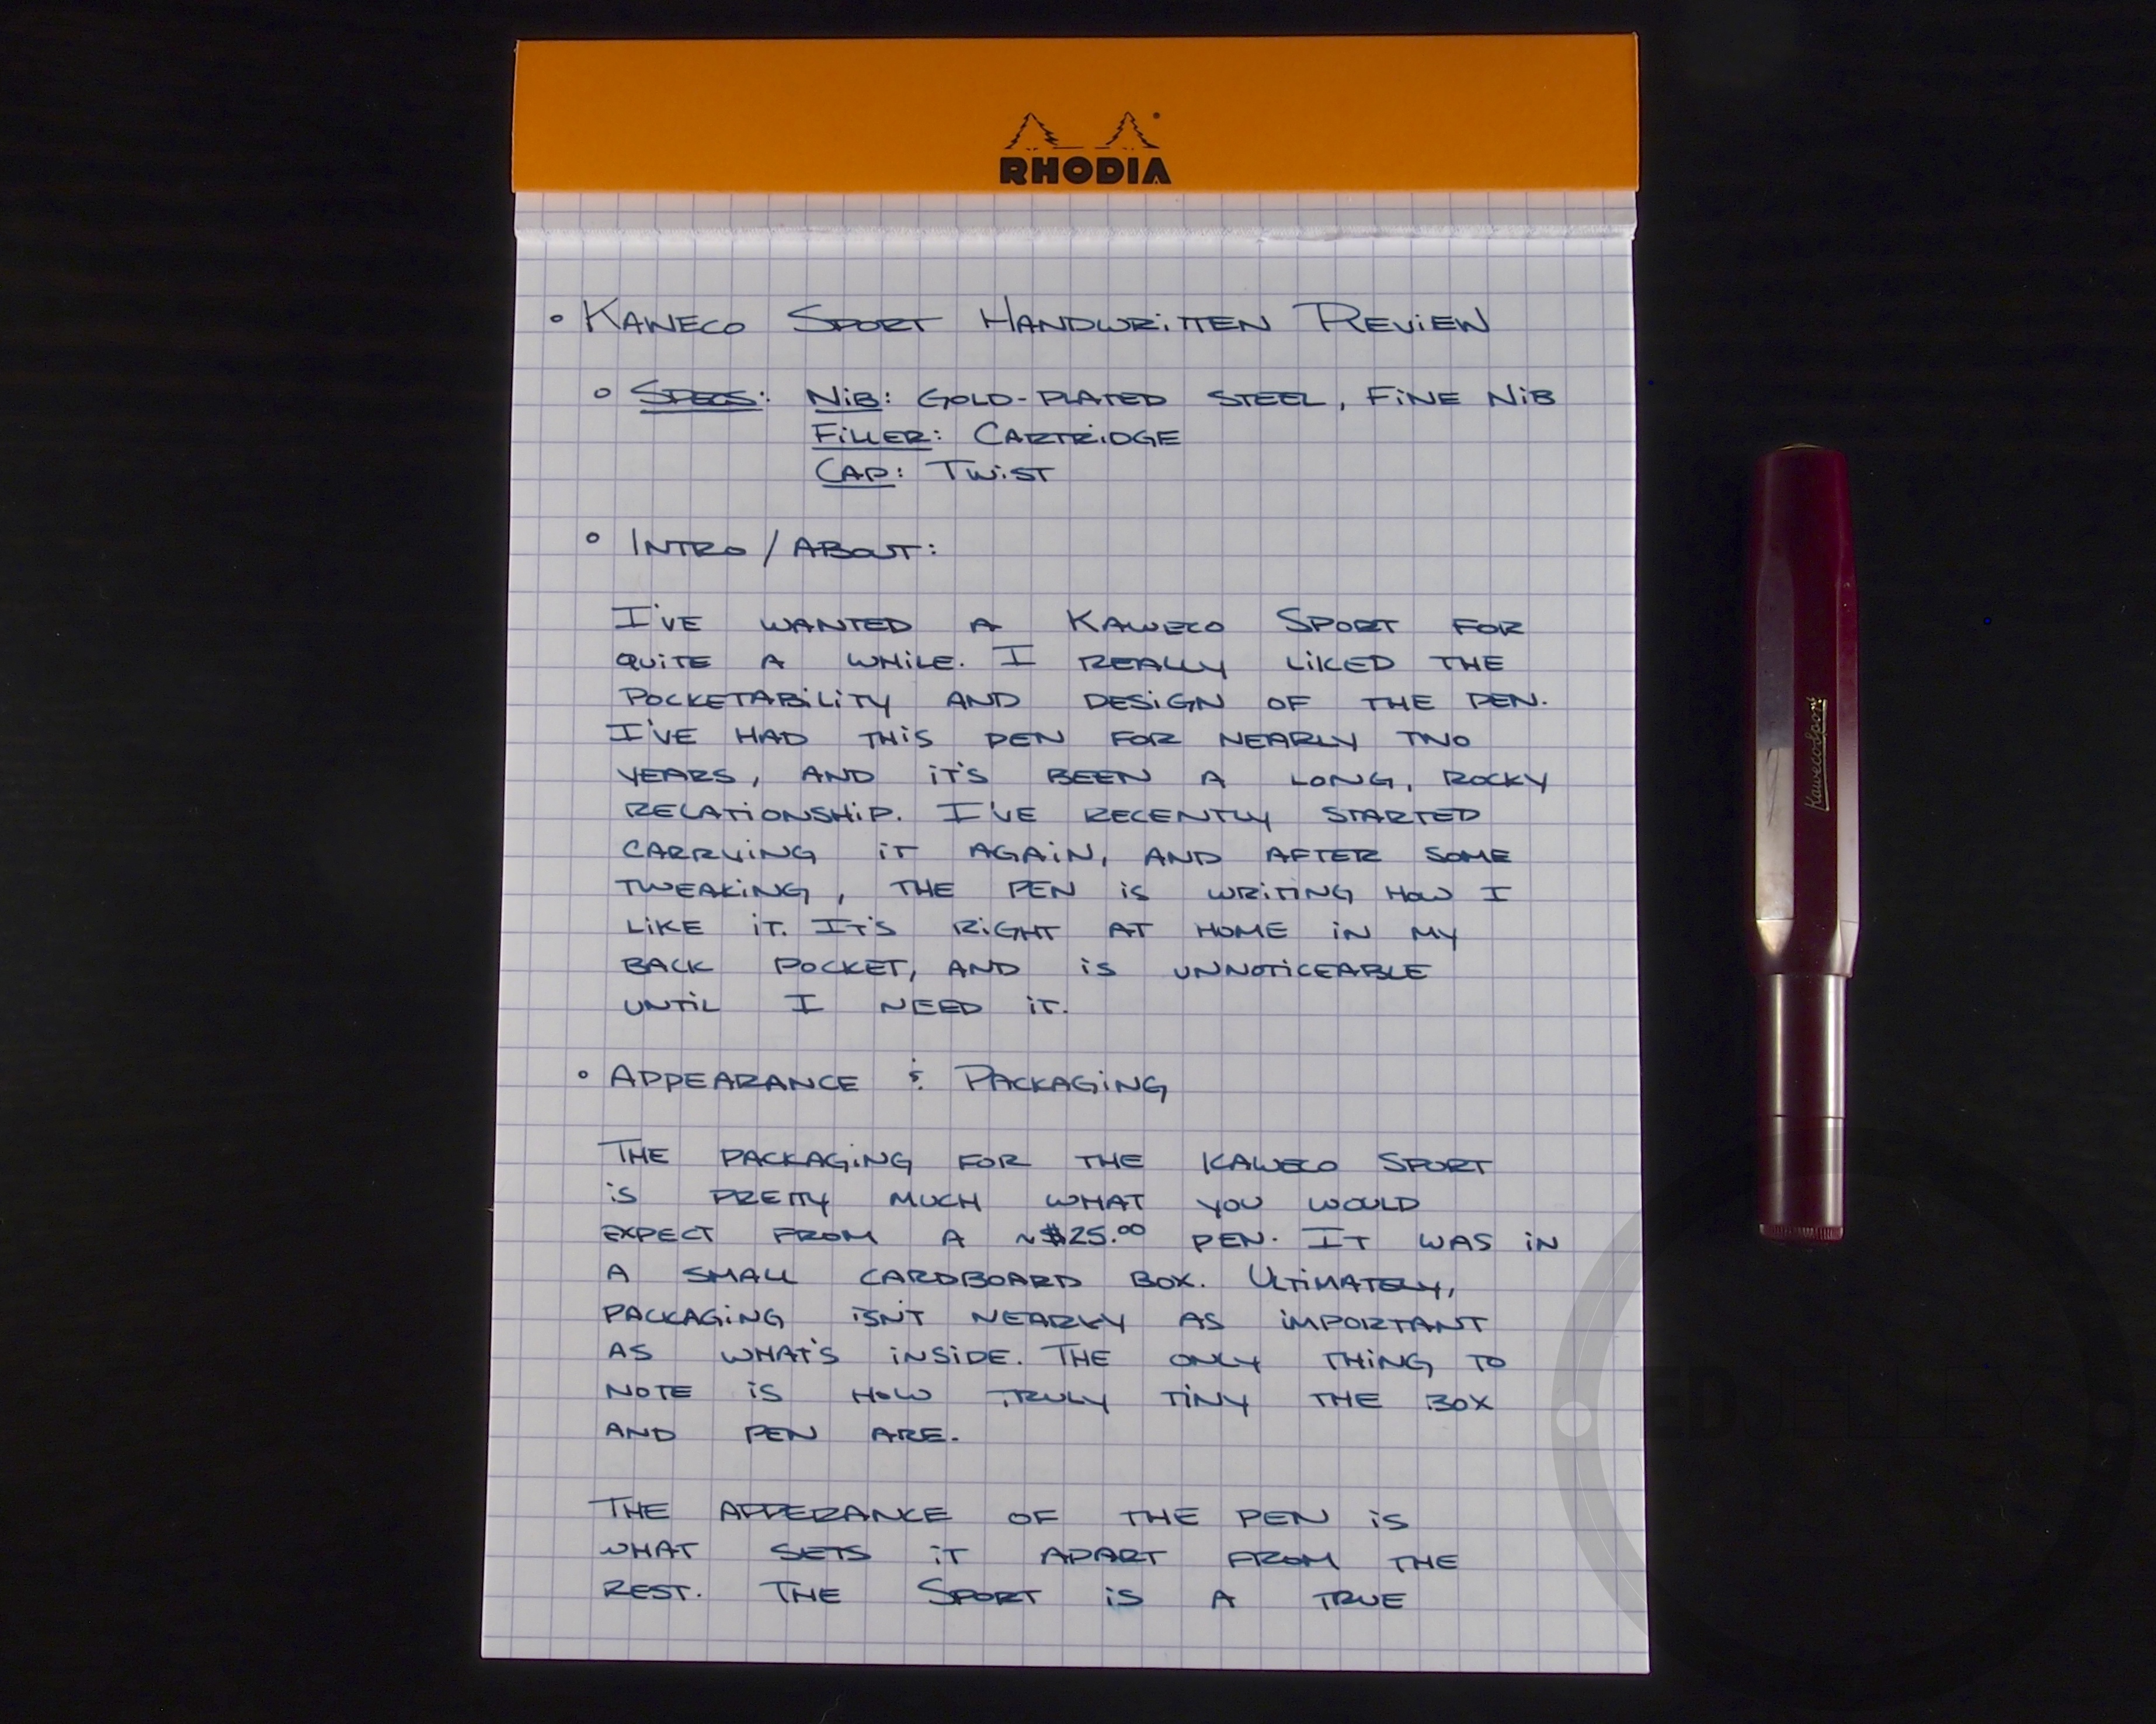 RHODIA
• KAWECO SPORT HANDWRiTTEN REViEW
• SPECS: NiB: GOLD-PLATED STEEL, FiNE NiB
FiLLER: CARTRiDGE
CAP: TWiST
• INTRO / ABOUT:
I'VE WANTED A KAWECO SPORT FOR
QUiTE A WHiLE. I REALLY LiKED THE
POCKETABiLiTY AND DESiGN OF THE PEN.
I'VE HAD THiS PEN FOR NEARLY TWO
YEARS, AND iT'S BEEN A LONG, ROCKY
RELATiONSHiP. I'VE RECENTLY STARTED
CARRYiNG iT AGAiN, AND AFTER SOME
TWEAKiNG, THE PEN iS WRiTiNG HOW I
LiKE iT. IT'S RiGHT AT HOME iN MY
BACK POCKET, AND iS UNNOTiCEABLE
UNTiL I NEED iT.
• APPEARANCE & PACKAGiNG
THE PACKAGiNG FOR THE KAWECO SPORT
iS PRETTY MUCH WHAT YOU WOULD
EXPECT FROM A ~$25.00 PEN. IT WAS iN
A SMALL CARDBOARD BOX. ULTiMATELY,
PACKAGiNG iSN'T NEARLY AS iMPORTANT
AS WHAT'S iNSiDE. THE ONLY THiNG TO
NOTE iS HOW TRULY TiNY THE BOX
AND PEN ARE.
THE APPERANCE OF THE PEN iS
WHAT SETS iT APART FROM THE
REST. THE SPORT iS A TRUE
KawecoSport